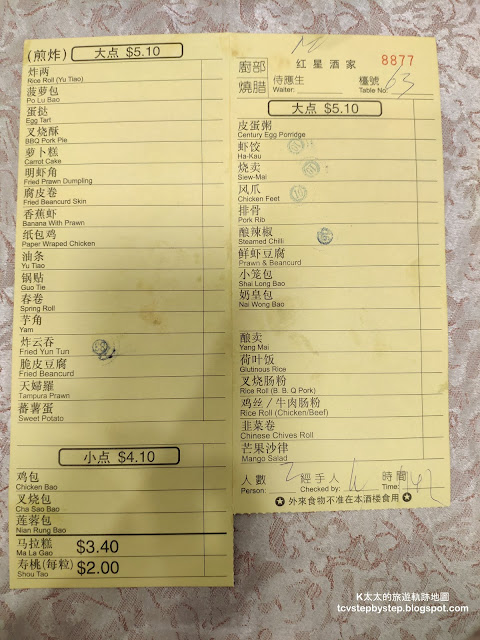 (煎炸) 大点 $5.10
炸两
Rice Roll (Yu Tiao)
菠萝包
Po Lu Bao
蛋挞
Egg Tart
叉烧酥
BBQ Pork Pie
萝卜糕
Carrot Cake
明虾角
Fried Prawn Dumpling
腐皮卷
Fried Beancurd Skin
香蕉虾
Banana With Prawn
纸包鸡
Paper Wraped Chicken
油条
Yu Tiao
锅贴
Guo Tie
春卷
Spring Roll
芋角
Yam
炸云吞
Fried Yun Tun
脆皮豆腐
Fried Beancurd
天婦羅
Tampura Prawn
蕃薯蛋
Sweet Potato
小点 $4.10
鸡包
Chicken Bao
叉烧包
Cha Sao Bao
莲蓉包
Nian Rung Bao
马拉糕 $3.40
Ma La Gao
寿桃(每粒) $2.00
Shou Tao
廚部 红星酒家 8877
燒腊 侍應生 檯號 63
Waiter: Table No:
大点 $5.10
皮蛋粥
Century Egg Porridge
虾饺
Ha-Kau
烧卖
Siew-Mai
风爪
Chicken Feet
排骨
Pork Rib
酿辣椒
Steamed Chilli
鲜虾豆腐
Prawn & Beancurd
小笼包
Shai Long Bao
奶皇包
Nai Wong Bao
酿卖
Yang Mai
荷叶饭
Glutinous Rice
叉烧肠粉
Rice Roll (B. B. Q Pork)
鸡丝/牛肉肠粉
Rice Roll (Chicken/Beef)
韭菜卷
Chinese Chives Roll
芒果沙律
Mango Salad
人數 經手人 時間
Person: Checked by: Time:
✪ 外来食物不准在本酒楼食用 ✪
K太太的旅遊軌跡地圖
tcvstepbystep.blogspot.com